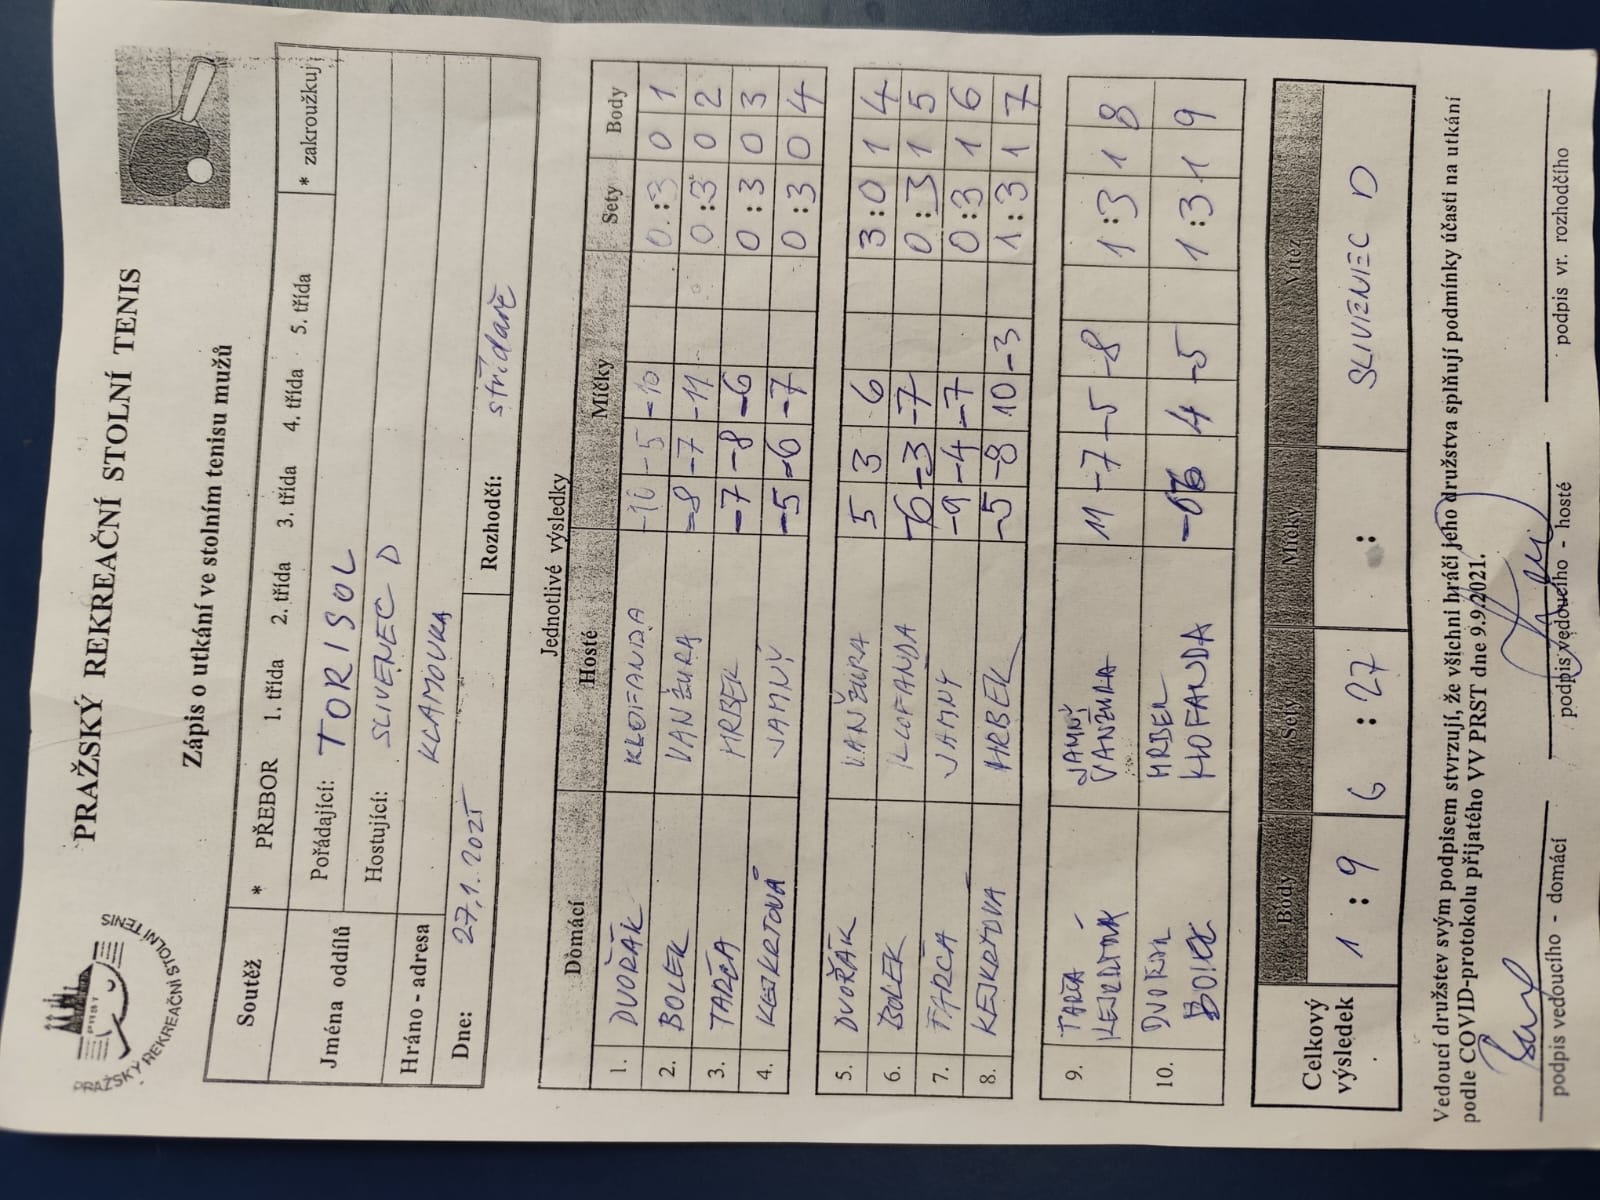 PRAŽSKÝ REKREAČNÍ STOLNÍ TENIS
PRST
PRAŽSKÝ REKREAČNÍ STOLNÍ TENIS
Zápis o utkání ve stolním tenisu mužů
Soutěž * PŘEBOR 1. třída 2. třída 3. třída 4. třída 5. třída * zakroužkuj
Jména oddílů Pořádající: TORISOL
Hostující: SLIVENEC D
Hráno - adresa KLAMOVKA
Dne: 27.1.2025 Rozhodčí: střídavě
Jednotlivé výsledky
Domácí Hosté Míčky Sety Body
1. DVOŘÁK KLOFANDA -10 -5 -10 0:3 0 1
2. BOLEK VANŽURA -8 -7 -11 0:3 0 2
3. TARČA HRBEK -7 -8 -6 0:3 0 3
4. KEJKRTOVÁ JAMNÝ -5 -6 -7 0:3 0 4
5. DVOŘÁK VANŽURA 5 3 6 3:0 1 4
6. BOLEK KLOFANDA -6 -3 -7 0:3 1 5
7. TARČA JAMNÝ -9 -4 -7 0:3 1 6
8. KEJKRTOVÁ HRBEK -5 -8 10 -3 1:3 1 7
9. TARČA JAMNÝ 11 -7 -5 -8 1:3 1 8
KEJKRTOVÁ VANŽURA
10. DVOŘÁK HRBEK 4 -5 1:3 1 9
BOLEK KLOFANDA
Celkový výsledek Body Sety Míčky Vítěz
1 : 9 6 : 27 : SLIVENEC D
Vedoucí družstev svým podpisem stvrzují, že všichni hráči jeho družstva splňují podmínky účasti na utkání
podle COVID-protokolu přijatého VV PRST dne 9.9.2021.
podpis vedoucího - domácí podpis vedoucího - hosté podpis vr. rozhodčího